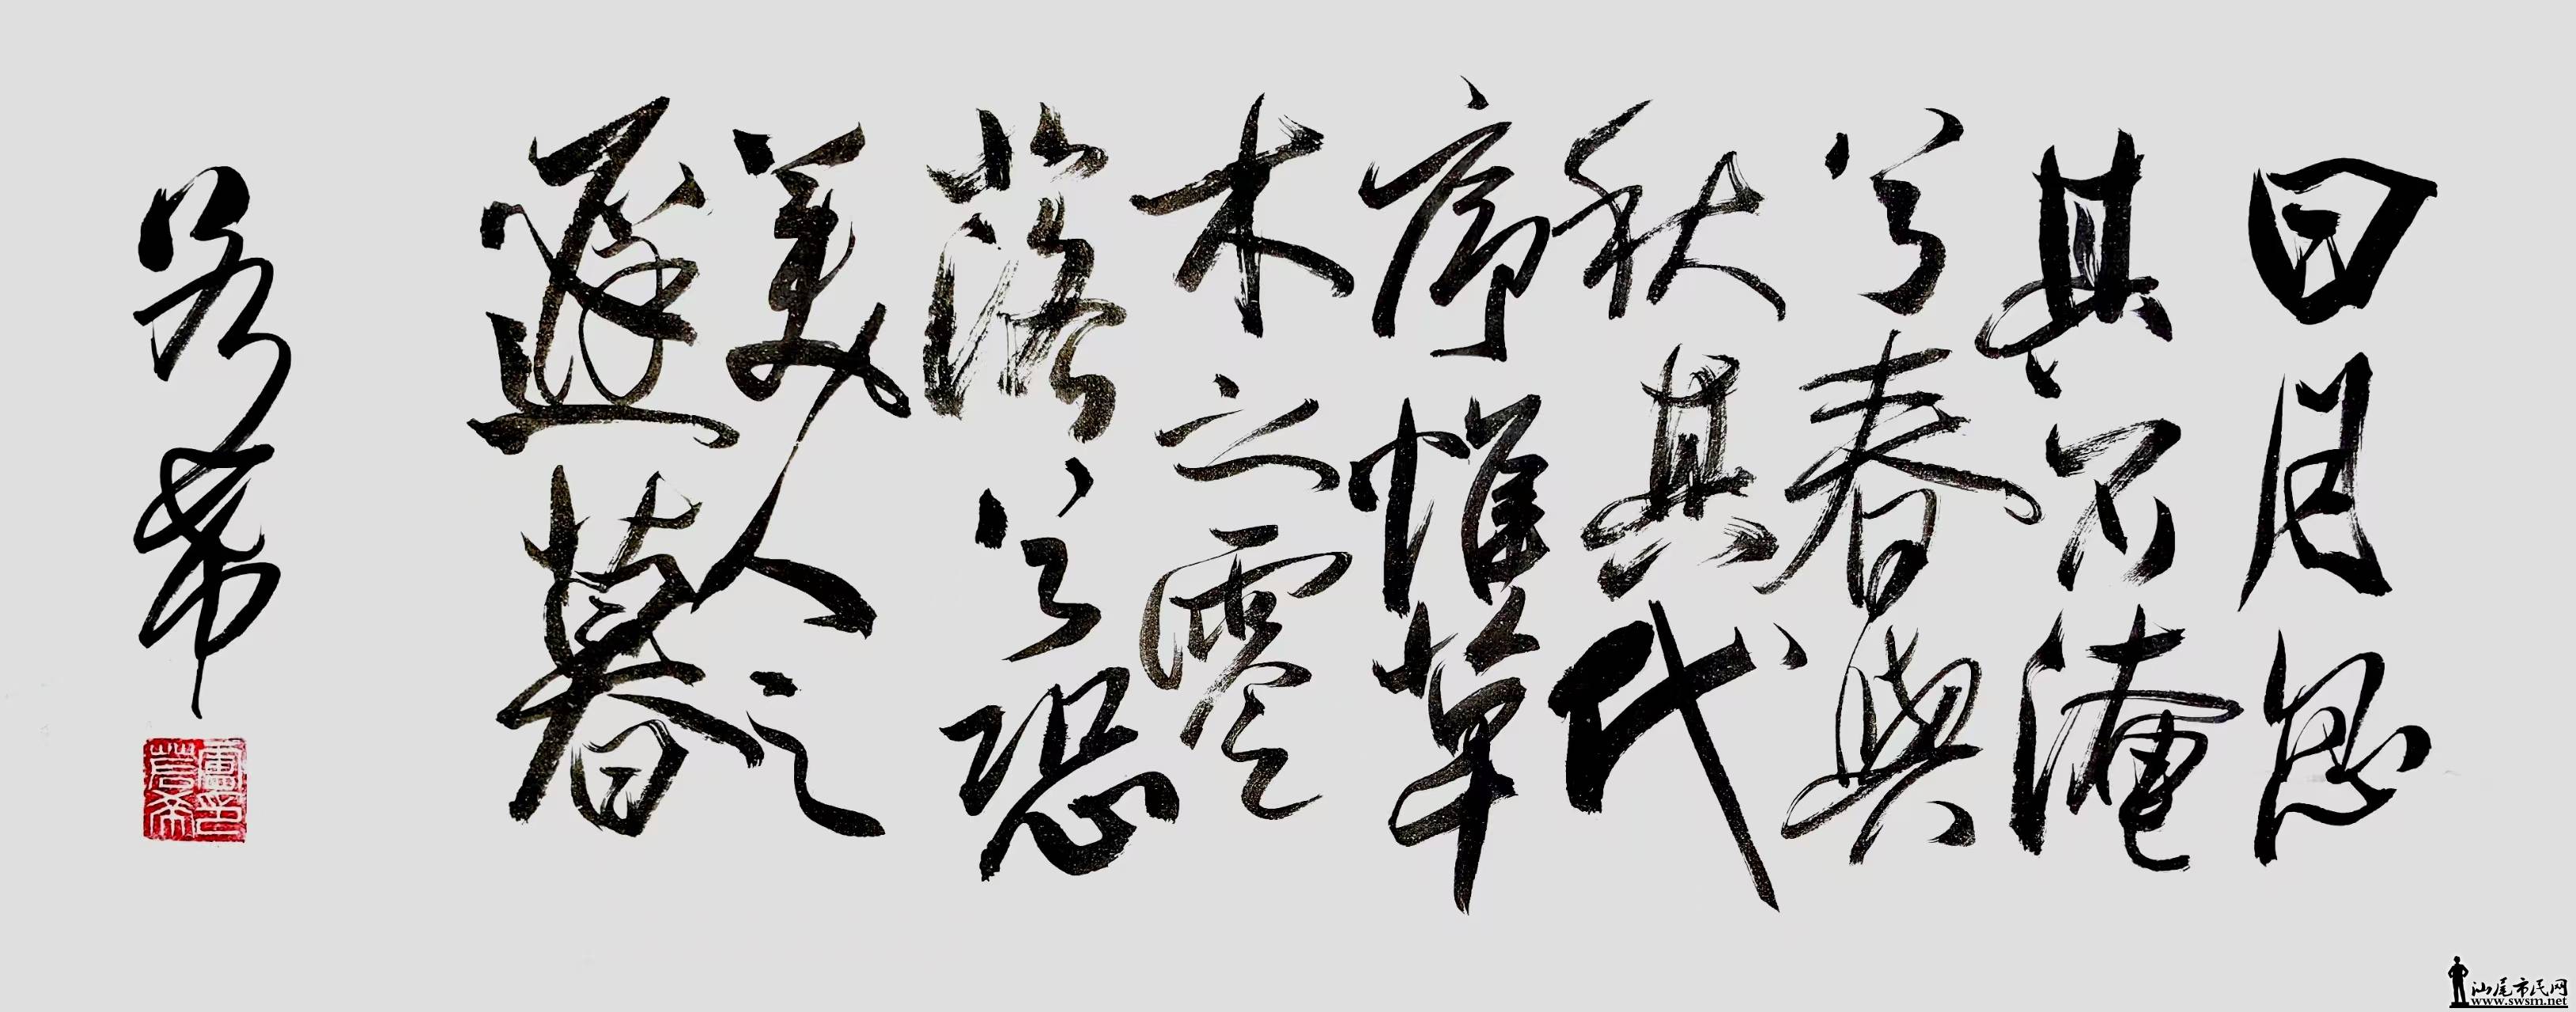 日月忽
其不淹
兮春與
秋其代
序惟草
木之零
落兮恐
美人之
遲暮
若希
盧印若希
汕尾市民网
www.swsm.net